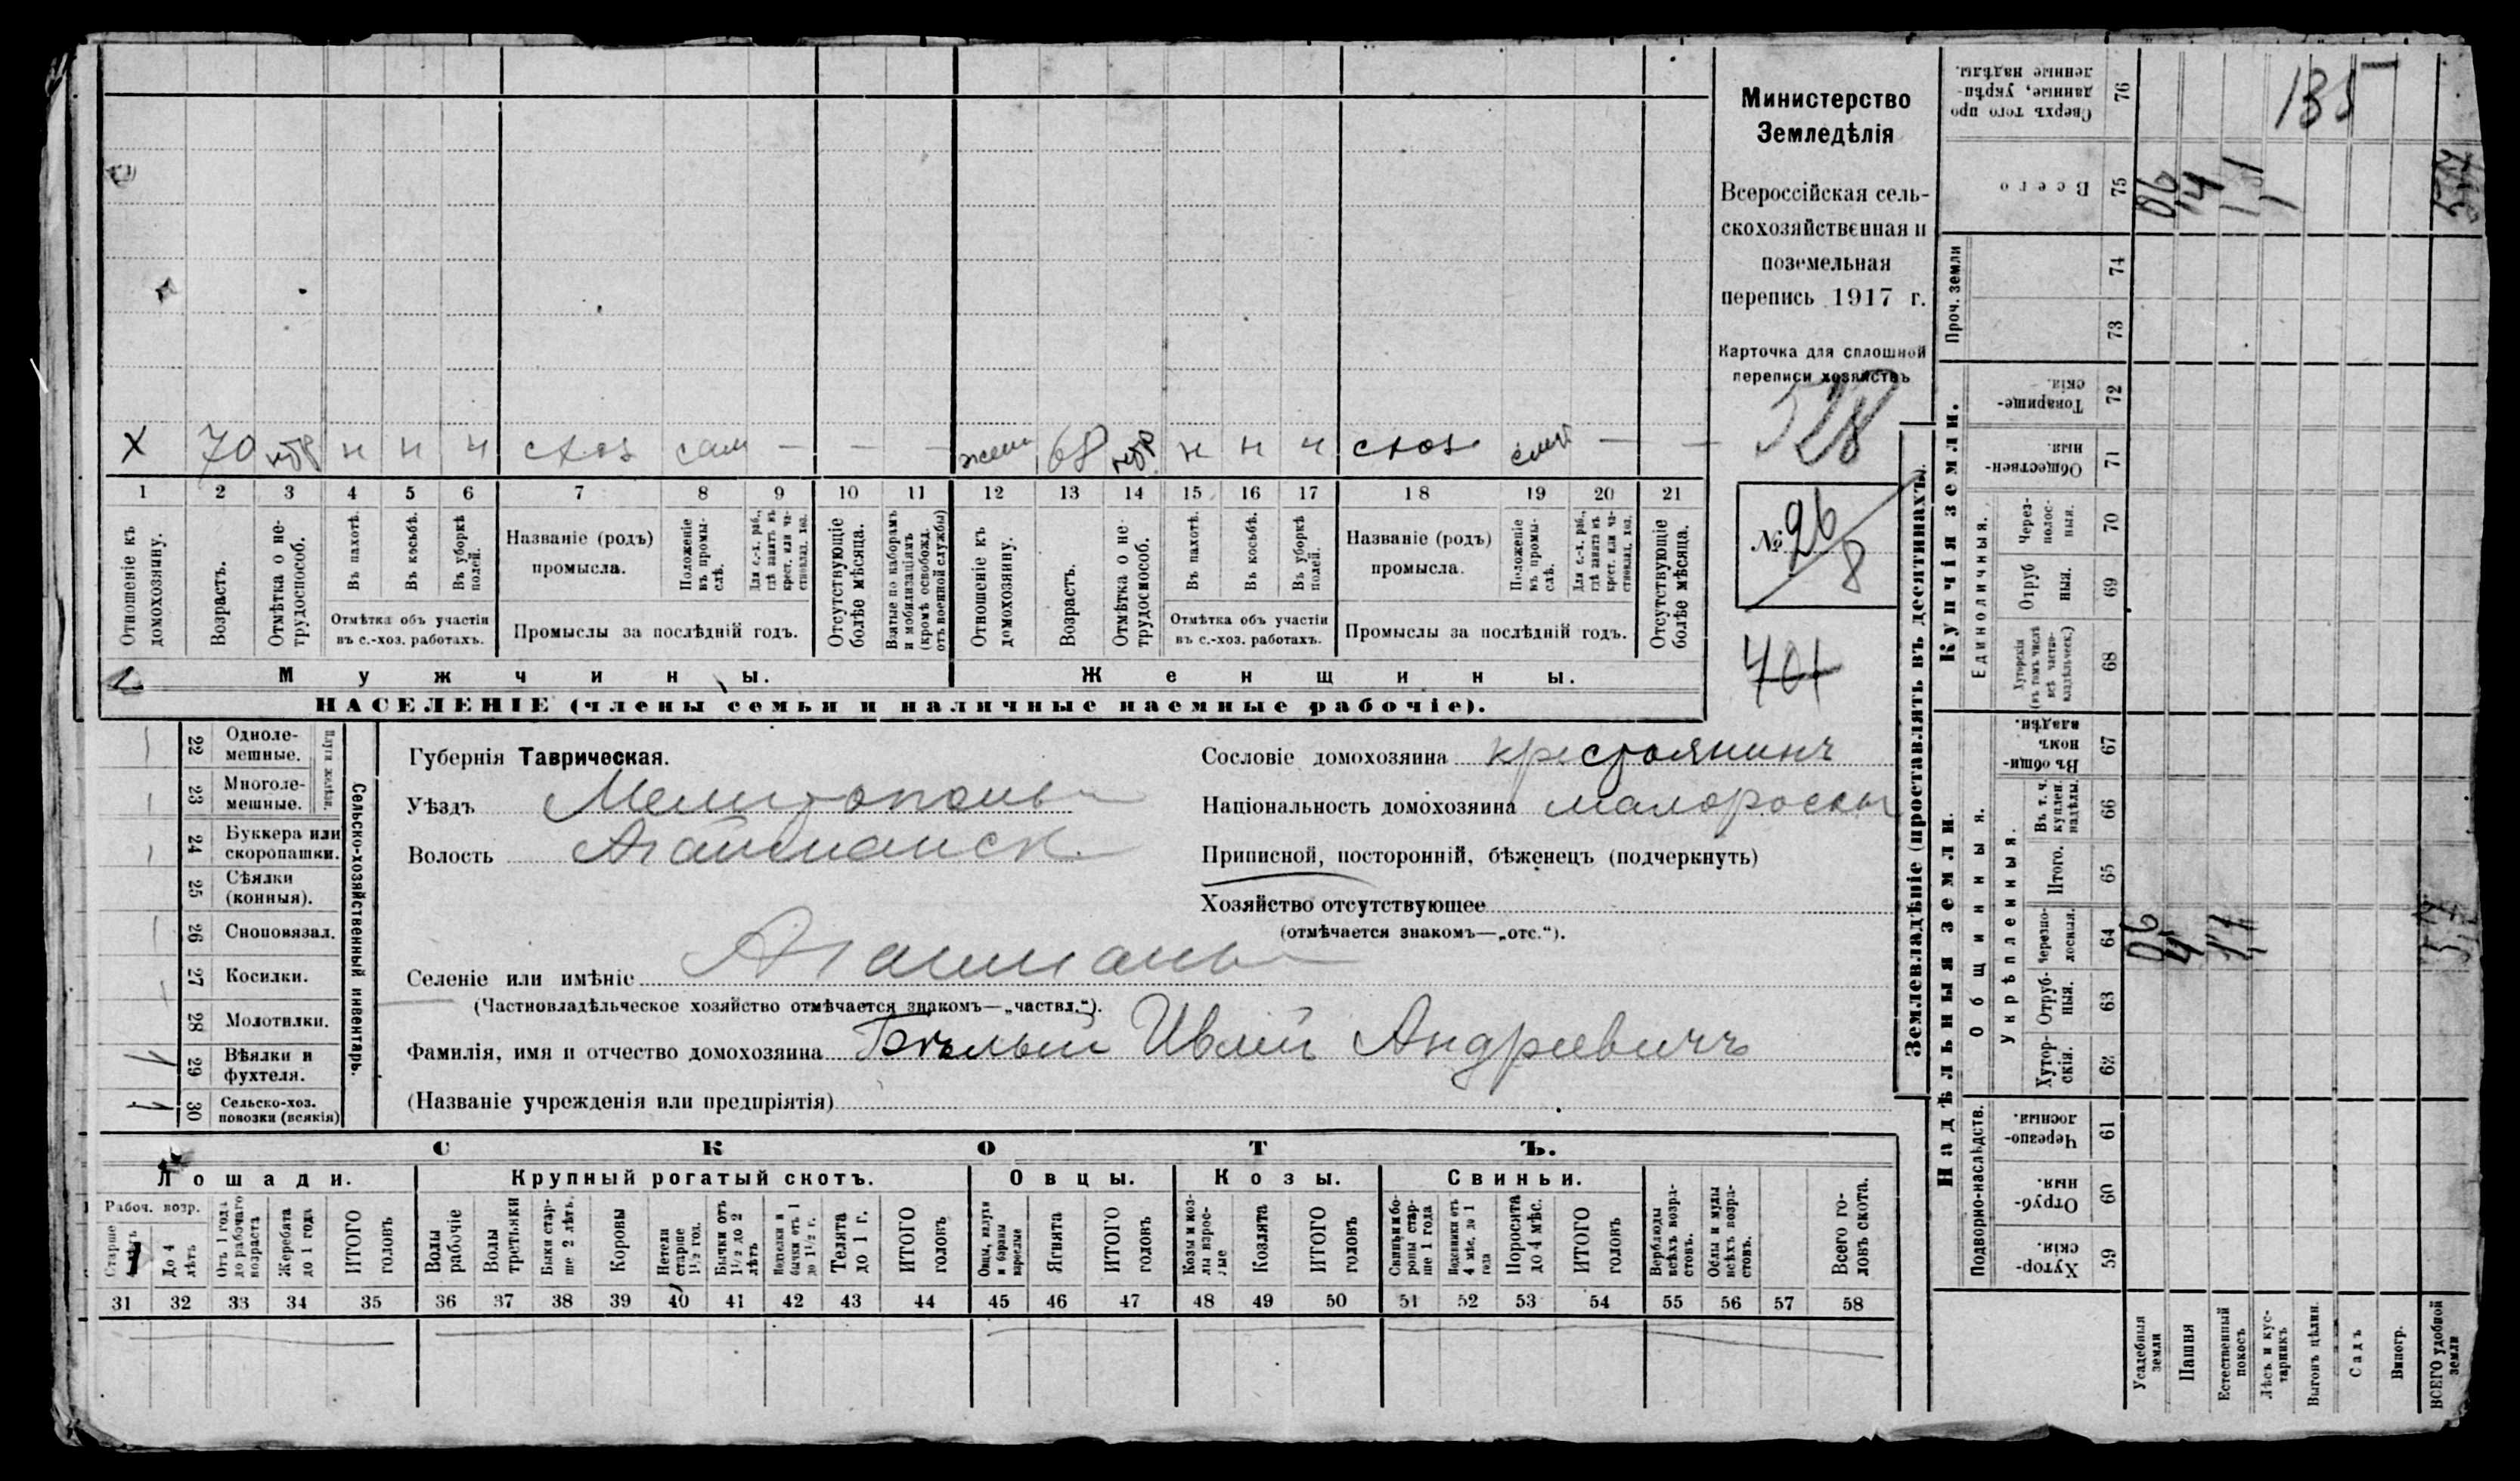 Министерство
Земледѣлія
Всероссійская сель-
скохозяйственная и
поземельная
перепись 1917 г.
Карточка для сплошной
переписи хозяйствъ
528
№ 26/8
401
Х 70 н н н схоз сам — — — жена 68 н н н схоз — —
1 2 3 4 5 6 7 8 9 10 11 12 13 14 15 16 17 18 19 20 21
Отношеніе къ домохозяину.
Возрастъ.
Отмѣтка о не-трудоспособ.
Въ пахотѣ.
Въ косьбѣ.
Въ уборкѣ полей.
Отмѣтка объ участіи
въ с.-хоз. работахъ.
Названіе (родъ)
промысла.
Положеніе въ промы-слѣ.
Для с.-х. раб., гдѣ занятъ въ крест. или ча-стновлад. хоз.
Промыслы за послѣдній годъ.
Отсутствующіе болѣе мѣсяца.
Взятые по наборамъ и мобилизаціямъ (кромѣ освобожд. отъ военной службы)
Отношеніе къ домохозяину.
Возрастъ.
Отмѣтка о не-трудоспособ.
Въ пахотѣ.
Въ косьбѣ.
Въ уборкѣ полей.
Отмѣтка объ участіи
въ с.-хоз. работахъ.
Названіе (родъ)
промысла.
Положеніе въ промы-слѣ.
Для с.-х. раб., гдѣ занята въ крест. или ча-стновлад. хоз.
Промыслы за послѣдній годъ.
Отсутствующіе болѣе мѣсяца.
Мужчины.
Женщины.
НАСЕЛЕНІЕ (члены семьи и наличные наемные рабочіе).
Сельско-хозяйственный инвентарь.
Плуги желѣзн.
22 Одноле-мешные.
23 Многоле-мешные.
24 Буккера или скоропашки.
25 Сѣялки (конныя).
26 Сноповязал.
27 Косилки.
28 Молотилки.
29 Вѣялки и фухтеля.
30 Сельско-хоз. повозки (всякія)
Губернія Таврическая.
Уѣздъ Мелитополь
Волость Агайманск.
Селеніе или имѣніе Агайманы
(Частновладѣльческое хозяйство отмѣчается знакомъ—„частвл.“).
Фамилія, имя и отчество домохозяина Бѣлый Ивлій Андреевичъ
(Названіе учрежденія или предпріятія)
Сословіе домохозяина крестьянинъ
Національность домохозяина малороссы
Приписной, посторонній, бѣженецъ (подчеркнуть)
Хозяйство отсутствующее
(отмѣчается знакомъ—„отс.“).
СКОТЪ.
Лошади.
Крупный рогатый скотъ.
Овцы.
Козы.
Свиньи.
Рабоч. возр.
Старше
До 4 лѣтъ
Отъ 1 года до рабочаго возраста
Жеребята до 1 года
ИТОГО головъ
Волы рабочіе
Волы третьяки
Быки стар-ше 2 лѣтъ.
Коровы
Нетели старше 1½ год.
Бычки отъ 1½ до 2 лѣтъ
бычки отъ 1 до 1½ г.
Телята до 1 г.
ИТОГО головъ
и бараны взрослые
Ягнята
ИТОГО головъ
Козы и коз-лы взрос-лые
Козлята
ИТОГО головъ
Свиньи и бо-ровы стар-ше 1 года
Подсвинки отъ 4 мѣс. до 1 года
Поросята до 4 мѣс.
ИТОГО головъ
Верблюды всѣхъ возра-стовъ.
Ослы и мулы всѣхъ возра-стовъ.
Всего го-ловъ скота.
31 32 33 34 35 36 37 38 39 40 41 42 43 44 45 46 47 48 49 50 51 52 53 54 55 56 57 58
Землевладѣніе (проставлять въ десятинахъ).
Надѣльныя земли.
Купчія земли.
Проч. земли
Подворно-наслѣдств.
Общинныя.
Укрѣпленныя.
Единоличныя.
59 Хутор-скія.
60 Отруб-ныя.
61 Черезпо-лосныя.
62 Хутор-скія.
63 Отруб-ныя.
64 Черезпо-лосныя.
65 Итого.
66 Въ т. ч. куплен. надѣлы.
67 Въ общи-номъ владѣн.
68 Хуторскія (въ томъ числѣ всѣ частно-владѣльческ.)
69 Отруб ныя.
70 Через-полос-ныя.
71 Обществен-ныя.
72 Товарище-скія.
73
74
75 Всего
76 Сверхъ того про данные, укрѣп-ленные надѣлы.
Усадебныя земли
Пашня
Естественный покосъ
Лѣсъ и кус-тарникъ
Выгонъ цѣлин.
Садъ
Виногр.
ВСЕГО удобной земли
06
135
06